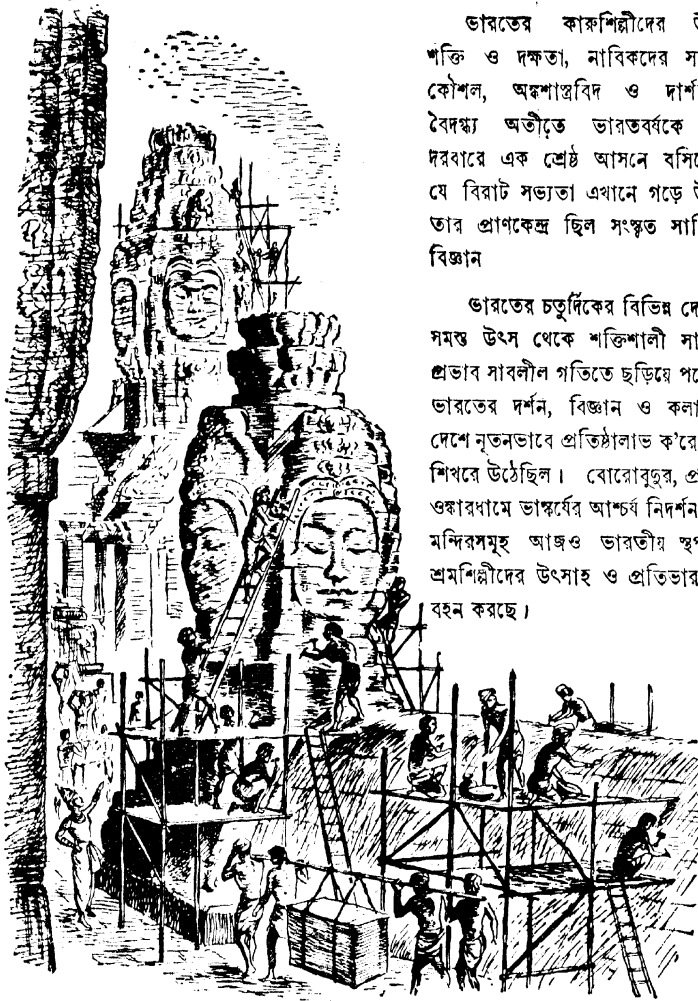 ভারতের কারুশিল্পীদের
শক্তি ও দক্ষতা, নাবিকদের
কৌশল, অঙ্কশাস্ত্রবিদ ও
বৈদগ্ধ্য অতীতে ভারতবর্ষকে
দরবারে এক শ্রেষ্ঠ আসনে
যে বিরাট সভ্যতা এখানে গড়ে
তার প্রাণকেন্দ্র ছিল সংস্কৃত
বিজ্ঞান
ভারতের চতুর্দিকের বিভিন্ন
সমস্ত উৎস থেকে শক্তিশালী
প্রভাব সাবলীল গতিতে ছড়িয়ে
ভারতের দর্শন, বিজ্ঞান ও
দেশে নূতনভাবে প্রতিষ্ঠালাভ ক'রে
শিখরে উঠেছিল। বোরোবুদুর,
ওঙ্কারধামে ভাস্কর্যের আশ্চর্য নিদর্শন
মন্দিরসমূহ আজও ভারতীয়
শ্রমশিল্পীদের উৎসাহ ও প্রতিভার
বহন করছে।